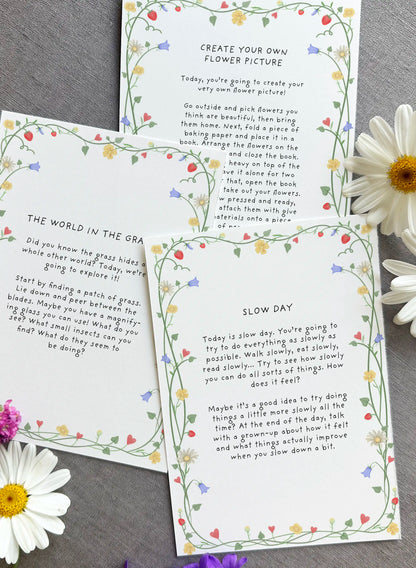 CREATE YOUR OWN
FLOWER PICTURE
Today, you're going to create your
very own flower picture!
Go outside and pick flowers you
think are beautiful, then bring
them home. Next, fold a piece of
baking paper and place it in a
book. Arrange the flowers on the
and close the book.
heavy on top of the
ve it alone for two
that, open the book
take out your flowers.
pressed and ready,
attach them with glue
materials onto a piece
of
THE WORLD IN THE GRA
Did you know the grass hides a
whole other world? Today, we're
going to explore it!
Start by finding a patch of grass.
Lie down and peer between the
blades. Maybe you have a magnify-
ing glass you can use! What do you
see? What small insects can you
find? What do they seem to
be doing?
SLOW DAY
Today is slow day. You're going to
try to do everything as slowly as
possible. Walk slowly, eat slowly,
read slowly... Try to see how slowly
you can do all sorts of things. How
does it feel?
Maybe it's a good idea to try doing
things a little more slowly all the
time? At the end of the day, talk
with a grown-up about how it felt
and what things actually improve
when you slow down a bit.